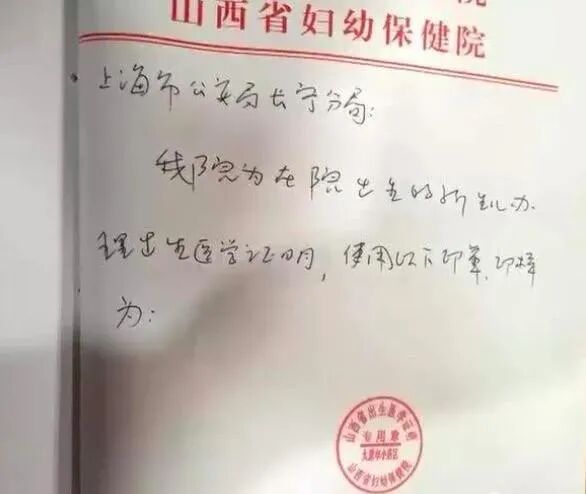 山西省妇幼保健院
上海市公安局长宁分局:
我院为在院出生的新生儿办
理出生医学证明,使用以下印章,印样
为:
山西省出生医学证明
专用章
太原市小店区
山西省妇幼保健院